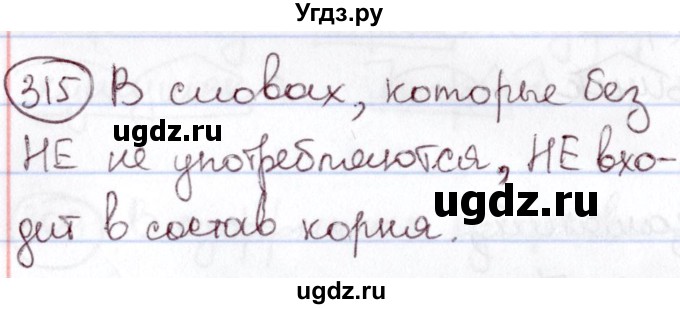 Угдз.ру
315 В словах, которые без
ugdz.ru ugdz.ru
НЕ не употребляются, НЕ вхо-
дит в состав корня.
ugdz.ru ugdz.ru
ugdz.ru